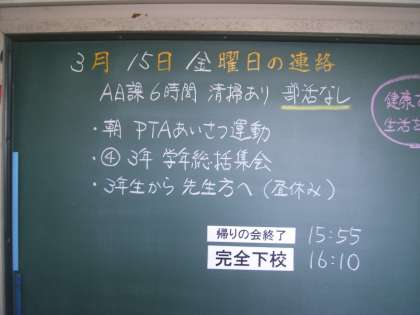 3月 15日 金曜日の連絡
AB課 6時間 清掃あり 部活なし
・朝 PTAあいさつ運動
・④ 3年 学年総括集会
・3年生から 先生方へ (昼休み)
帰りの会終了 15:55
完全下校 16:10
健康で
生活を